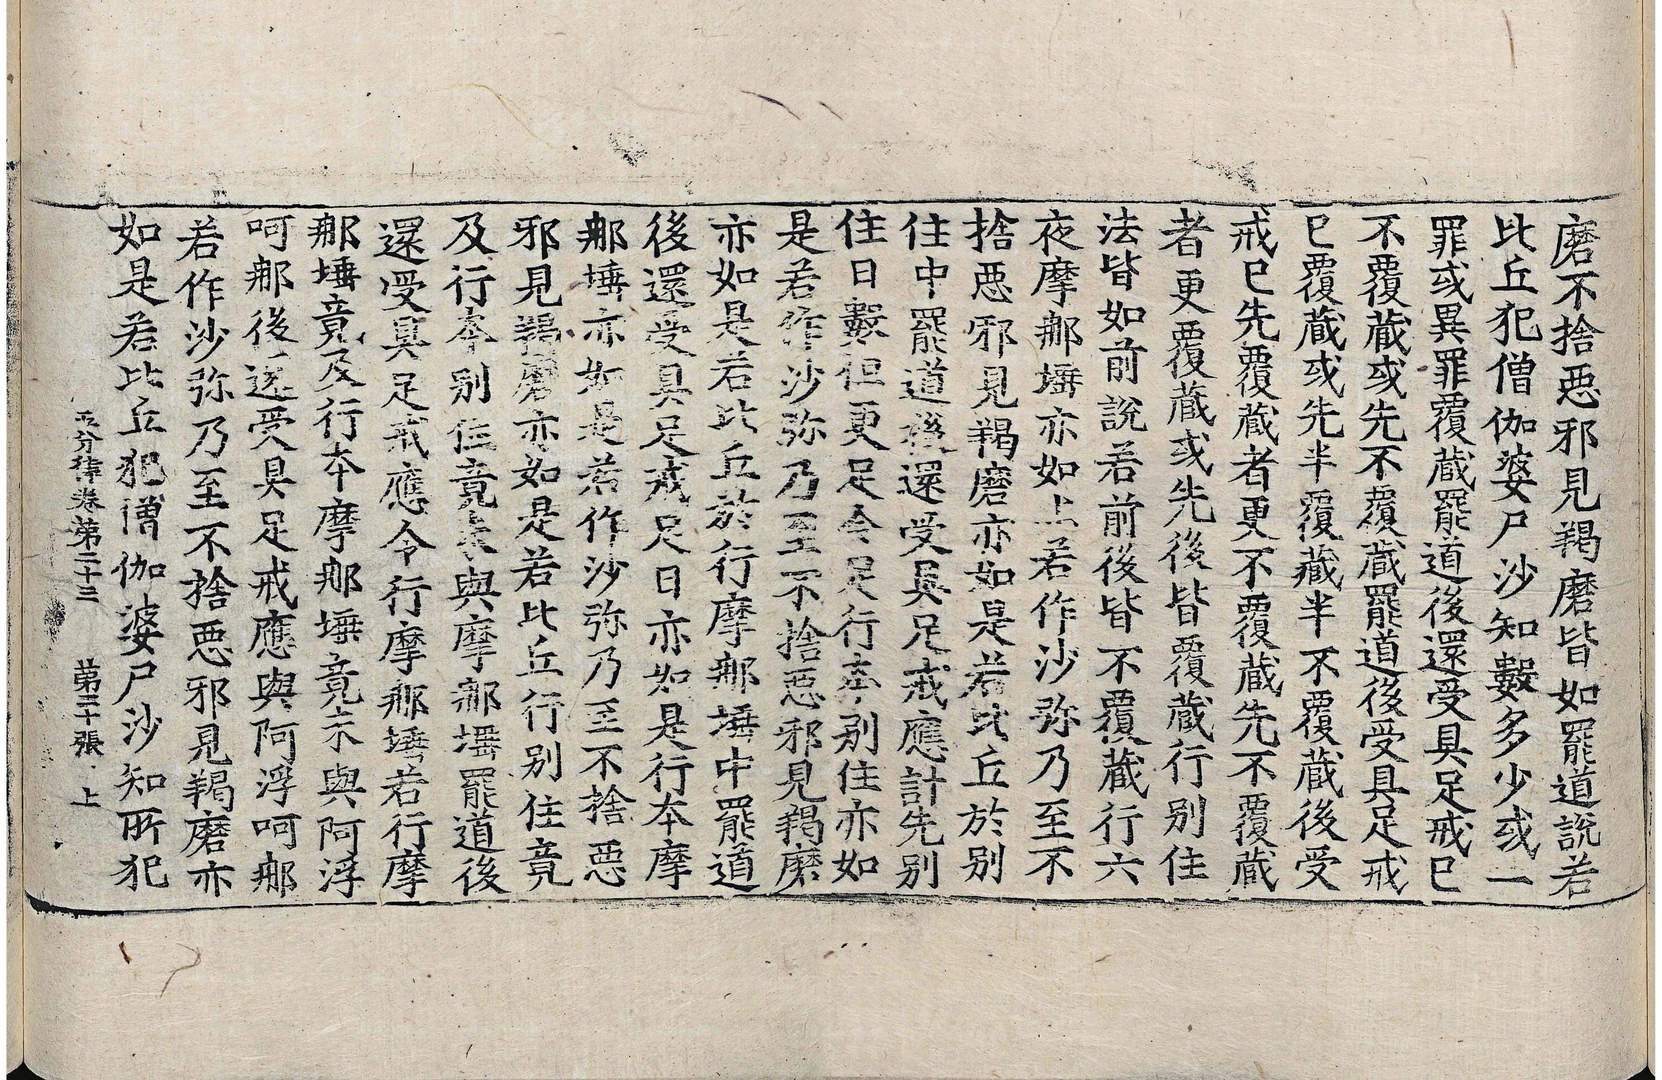 磨不捨惡邪見羯磨皆如罷道說若
比丘犯僧伽婆尸沙知數多少或一
罪或異罪覆蔵罷道後還受具足戒已
不覆蔵或先不覆蔵罷道後受具足戒
已覆蔵或先半覆蔵半不覆蔵後受
戒已先覆蔵者更不覆蔵先不覆蔵
者更覆蔵或先後皆覆蔵行别住
法皆如前說若前後皆不覆蔵行六
夜摩那埵亦如上若作沙弥乃至不
捨惡邪見羯磨亦如是若比丘於别
住中罷道後還受具足戒應計先别
住日數但更足令足行本别住亦如
是若作沙弥乃至不捨惡邪見羯磨
亦如是若比丘於行摩那埵中罷道
後還受具足戒足日亦如是行本摩
那埵亦如是若作沙弥乃至不捨惡
邪見羯磨亦如是若比丘行别住竟
及行本别住竟未與摩那埵罷道後
還受具足戒應令行摩那埵若行摩
那埵竟及行本摩那埵竟未與阿浮
呵那後還受具足戒應與阿浮呵那
若作沙弥乃至不捨惡邪見羯磨亦
如是若比丘犯僧伽婆尸沙知所犯
五分律卷第二十三 第二十張 上